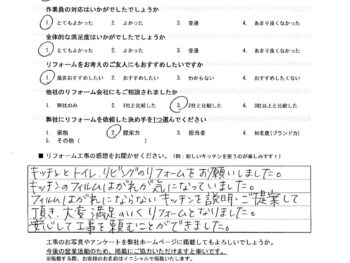 作業員の対応はいかがでしたでしょうか
1. とてもよかった 2. よかった 3. 普通 4. あまり良くなかった
全体的な満足度はいかがでしたでしょうか
1. とてもよかった 2. よかった 3. 普通 4. あまり良くなかった
リフォームをお考えのご友人にもおすすめしたいですか
1. 是非おすすめしたい 2. おすすめしたい 3. わからない 4. おすすめしたくない
他社のリフォーム会社にもご相談されましたか
1. 弊社のみ 2. 1社と比較した 3. 2社と比較した 4. 3社以上と比較した
弊社にリフォームを依頼した決め手を1つ選んでください
1. 価格 2. 提案力 3. 担当者 4. 知名度(ブランド力)
5. その他 ( )
■ リフォーム工事の感想をお聞かせください。(例:新しいキッチンを使うのが楽しみです!)
キッチンとトイレ、リビングのリフォームをお願いしました。
キッチンのフィルムはがれが気になっていました。
フィルムはがれにならないキッチンを説明・ご提案して
頂き、大変満足のいくリフォームとなりました。
安心して工事を頼むことができました。
工事のお写真やアンケートを弊社ホームページに掲載してもよろしいでしょうか。
今後の営業活動のため、掲載にご協力いただけますと幸いです。
※掲載する際、お客様のお名前はイニシャルで掲載いたします。